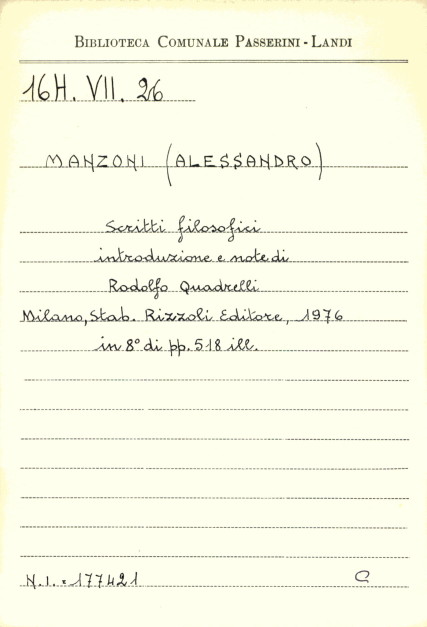 BIBLIOTECA COMUNALE PASSERINI - LANDI
16H. VII. 26
MANZONI (ALESSANDRO)
Scritti filosofici
introduzione e note di
Rodolfo Quadrelli
Milano, Stab. Rizzoli Editore, 1976
in 8° di pp. 518 ill.
N.I. = 177421 C